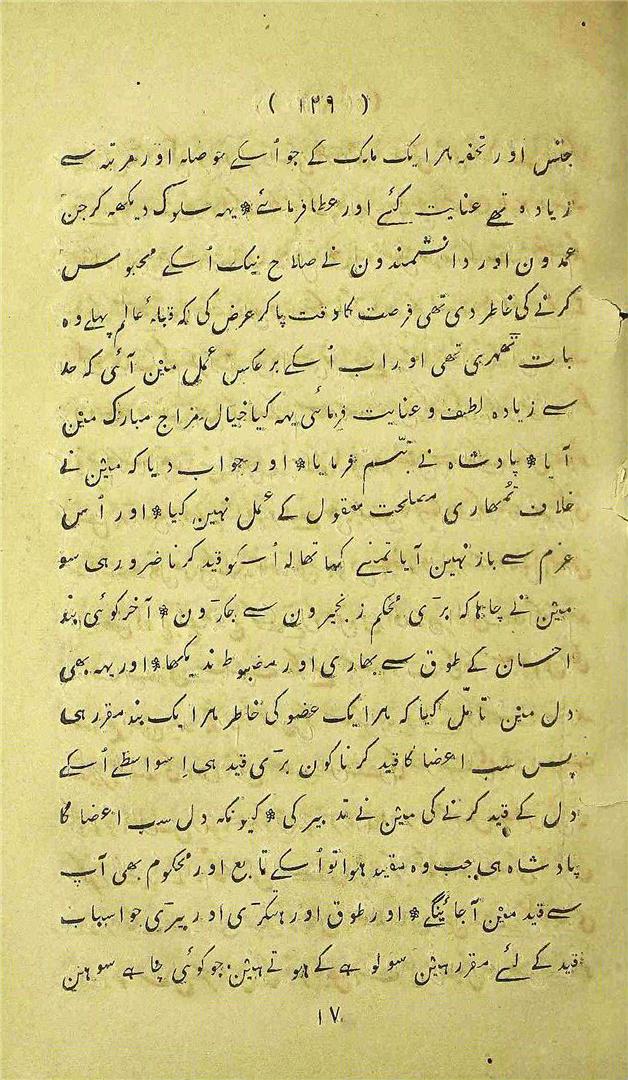 ( ۱۲۹ )
جنس اور تحفہ ہرایک ملک کے جو اُسکے حوصلہ اور مرتبہ سے
زیادہ تھے عنایت کئے اور عطا فرمائے * یہہ سلوک دیکھہ کر جن
عمدون اور دانشمندون نے صلاح نیک اُسکے محبوس
کرنے کی خاطر دی تھی فرصت کا وقت پا کر عرض کی کہ قبلۂ عالم پہلے وہ
بات ٹھہری تھی اور اب اُسکے برعکس عمل مین آئی کہ حد
سے زیادہ لطف و عنایت فرمائی یہہ کیا خیال مزاج مبارک مین
آیا * پادشاہ نے تبسّم فرمایا * اور جواب دیا کہ مین نے
خلاف تُمھاری مصلحت معقول کے عمل نہین کیا * اور اُس
عزم سے باز نہین آیا تمنے کہا تھا کہ اُسکو قید کرنا ضرور ہی سو
مین نے چاہا کہ بڑی مُحکم زنجیرون سے جکڑون * آخر کوئی بند
احسان کے طوق سے بھاری اور مضبوط ندیکھا * اور یہہ بھی
دل مین تامّل کیا کہ ہرایک عضو کی خاطر ہرایک بند مقرر ہی
پس سب اعضا کا قید کرنا کون بڑی قید ہی اِسواسطے اُسکے
دل کے قید کرنے کی مین نے تدبیر کی * کیونکہ دل سب اعضا کا
پادشاہ ہی جب وہ مقید ہوا تو اُسکے تابع اور محکوم بھی آپ
سے قید مین آجائینگے * اور طوق اور ہتکڑی اور بیڑی جو اسباب
قید کے لئے مقرر ہین سو لوہے کے ہوتے ہین جو کوئی چاہے سوہین
۱۷